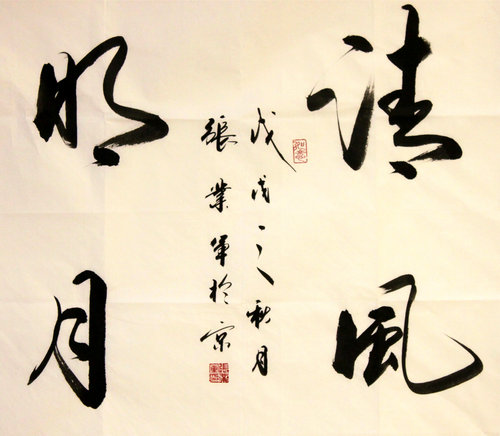 清風
明月
戊戌之秋月
張業軍於京